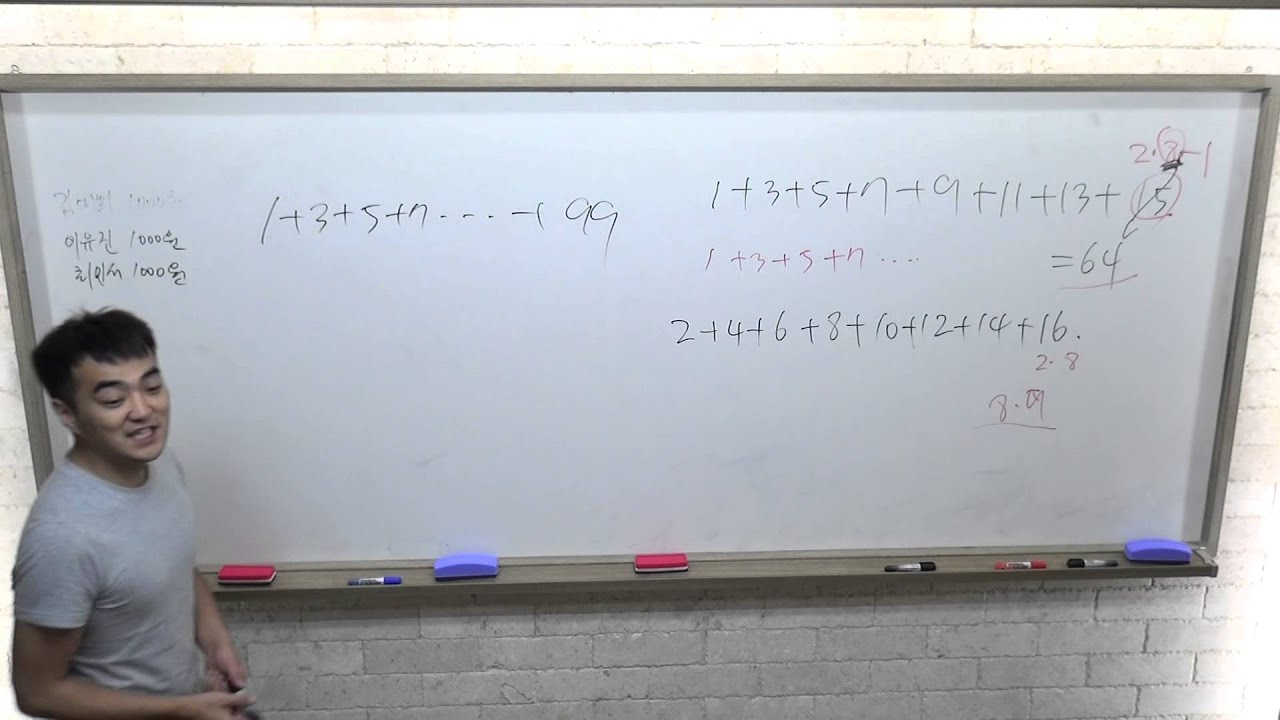 1000원
이유진 1000원
최인서 1000원
1+3+5+7....+99
2·8-1
1+3+5+7+9+11+13+15
=64
1+3+5+7....
2+4+6+8+10+12+14+16.
2·8
8·9